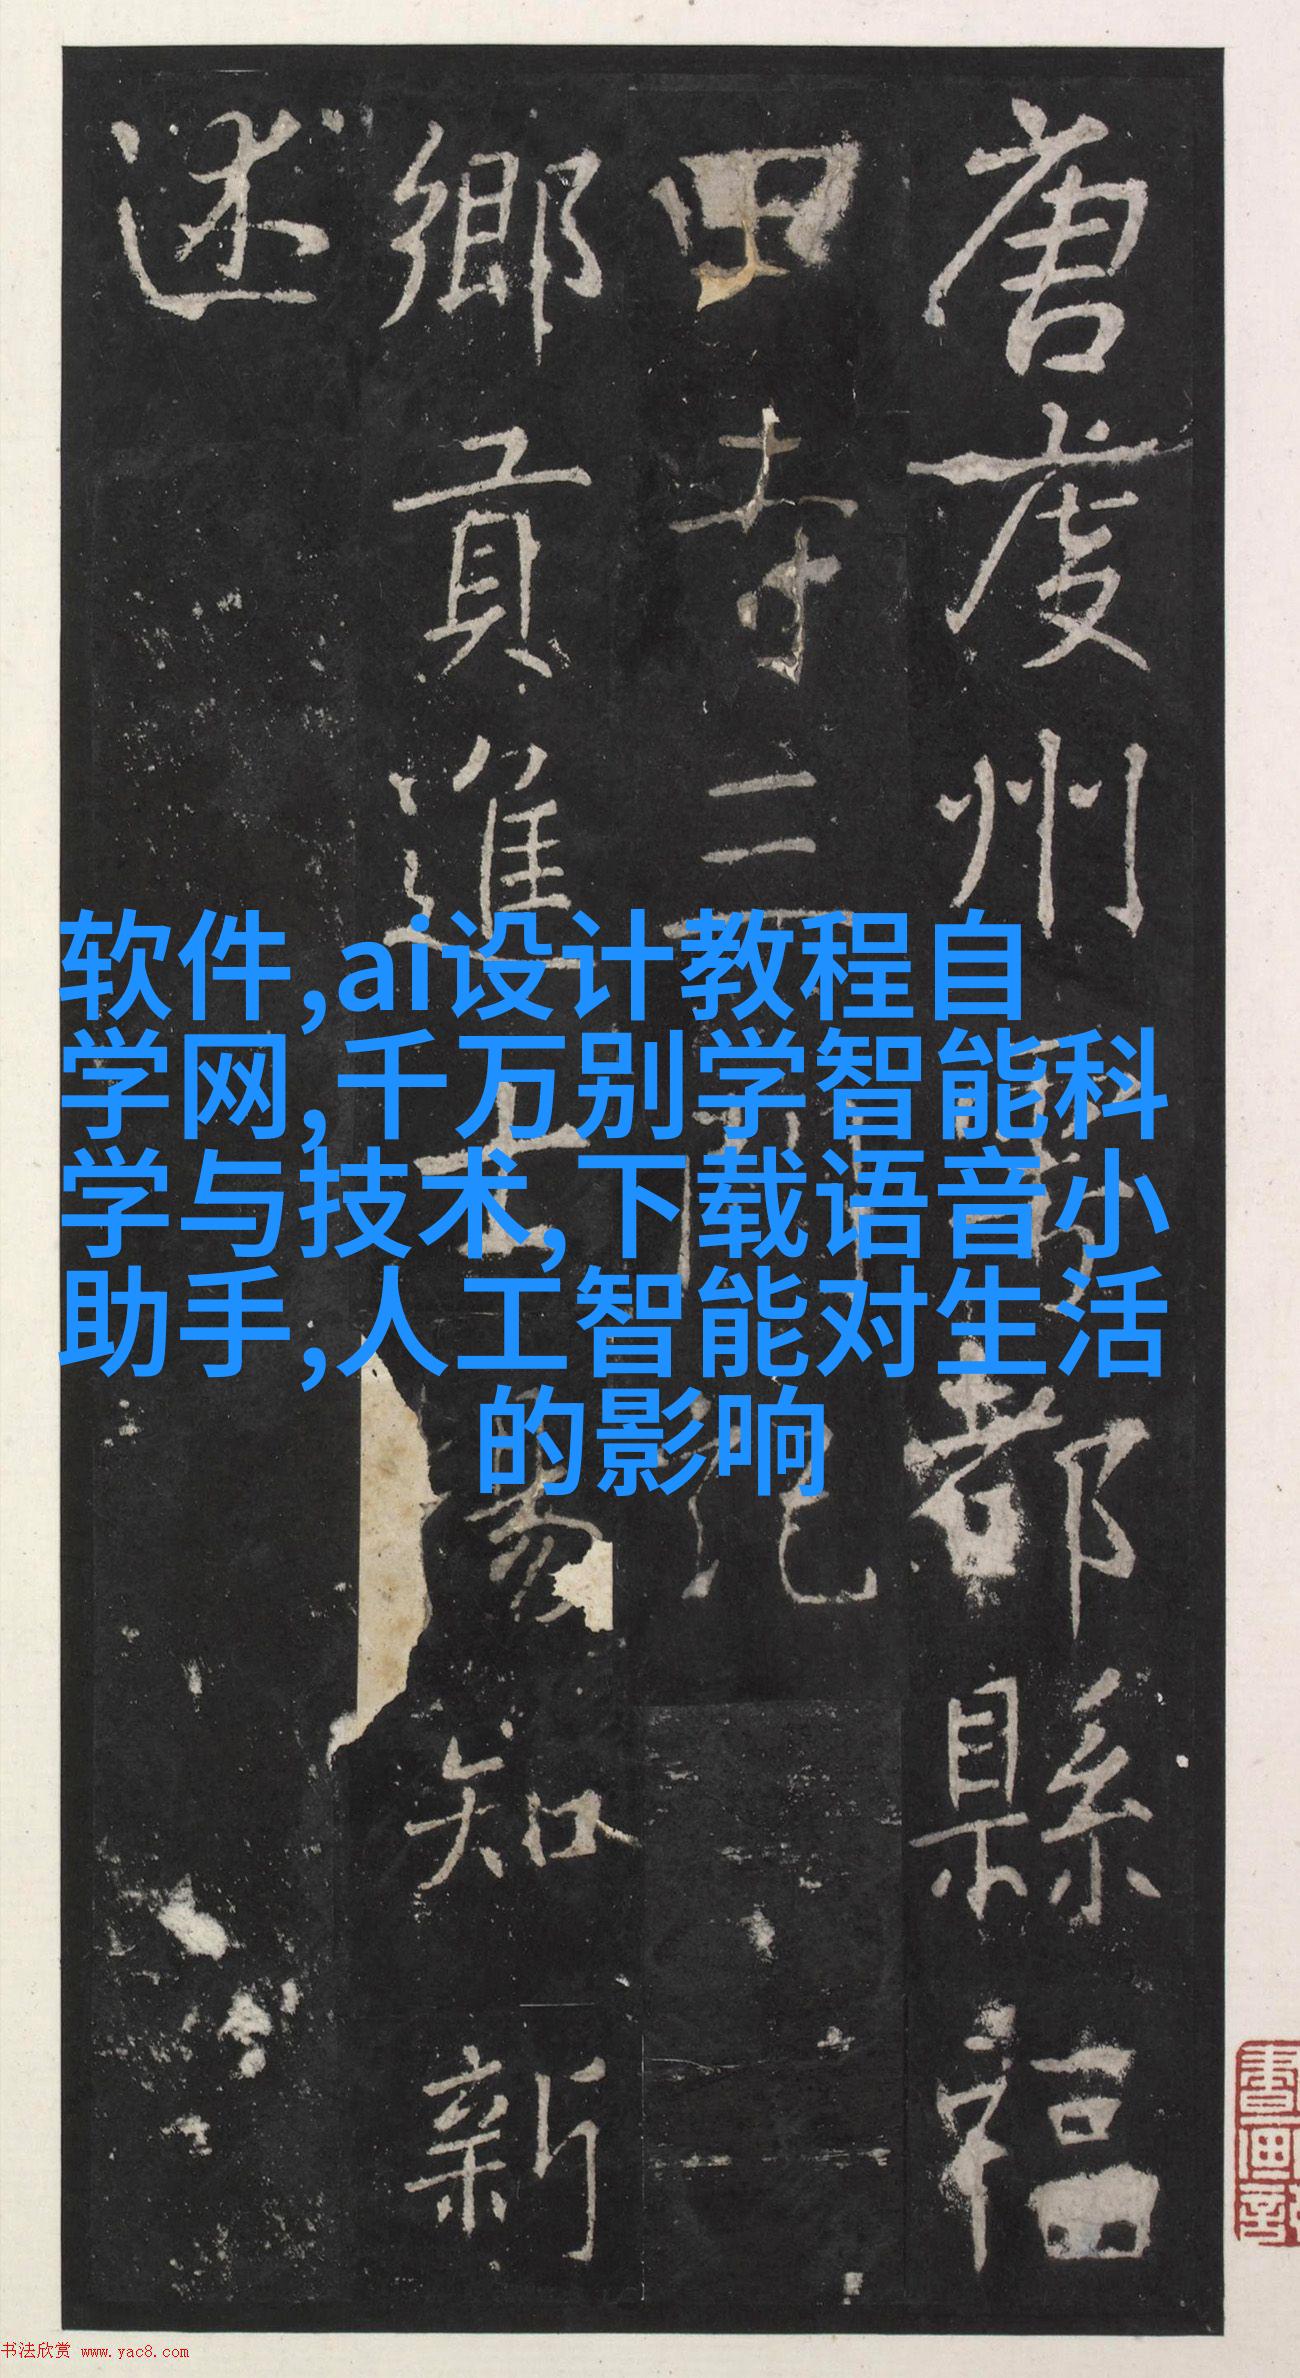 软件,ai设计教程自
学网,千万别学智能科
学与技术,下载语音小
助手,人工智能对生活
的影响
唐虔州都縣福
田寺三門記
鄉貢進士易知新
述
書画
书法欣赏 www.yac8.com